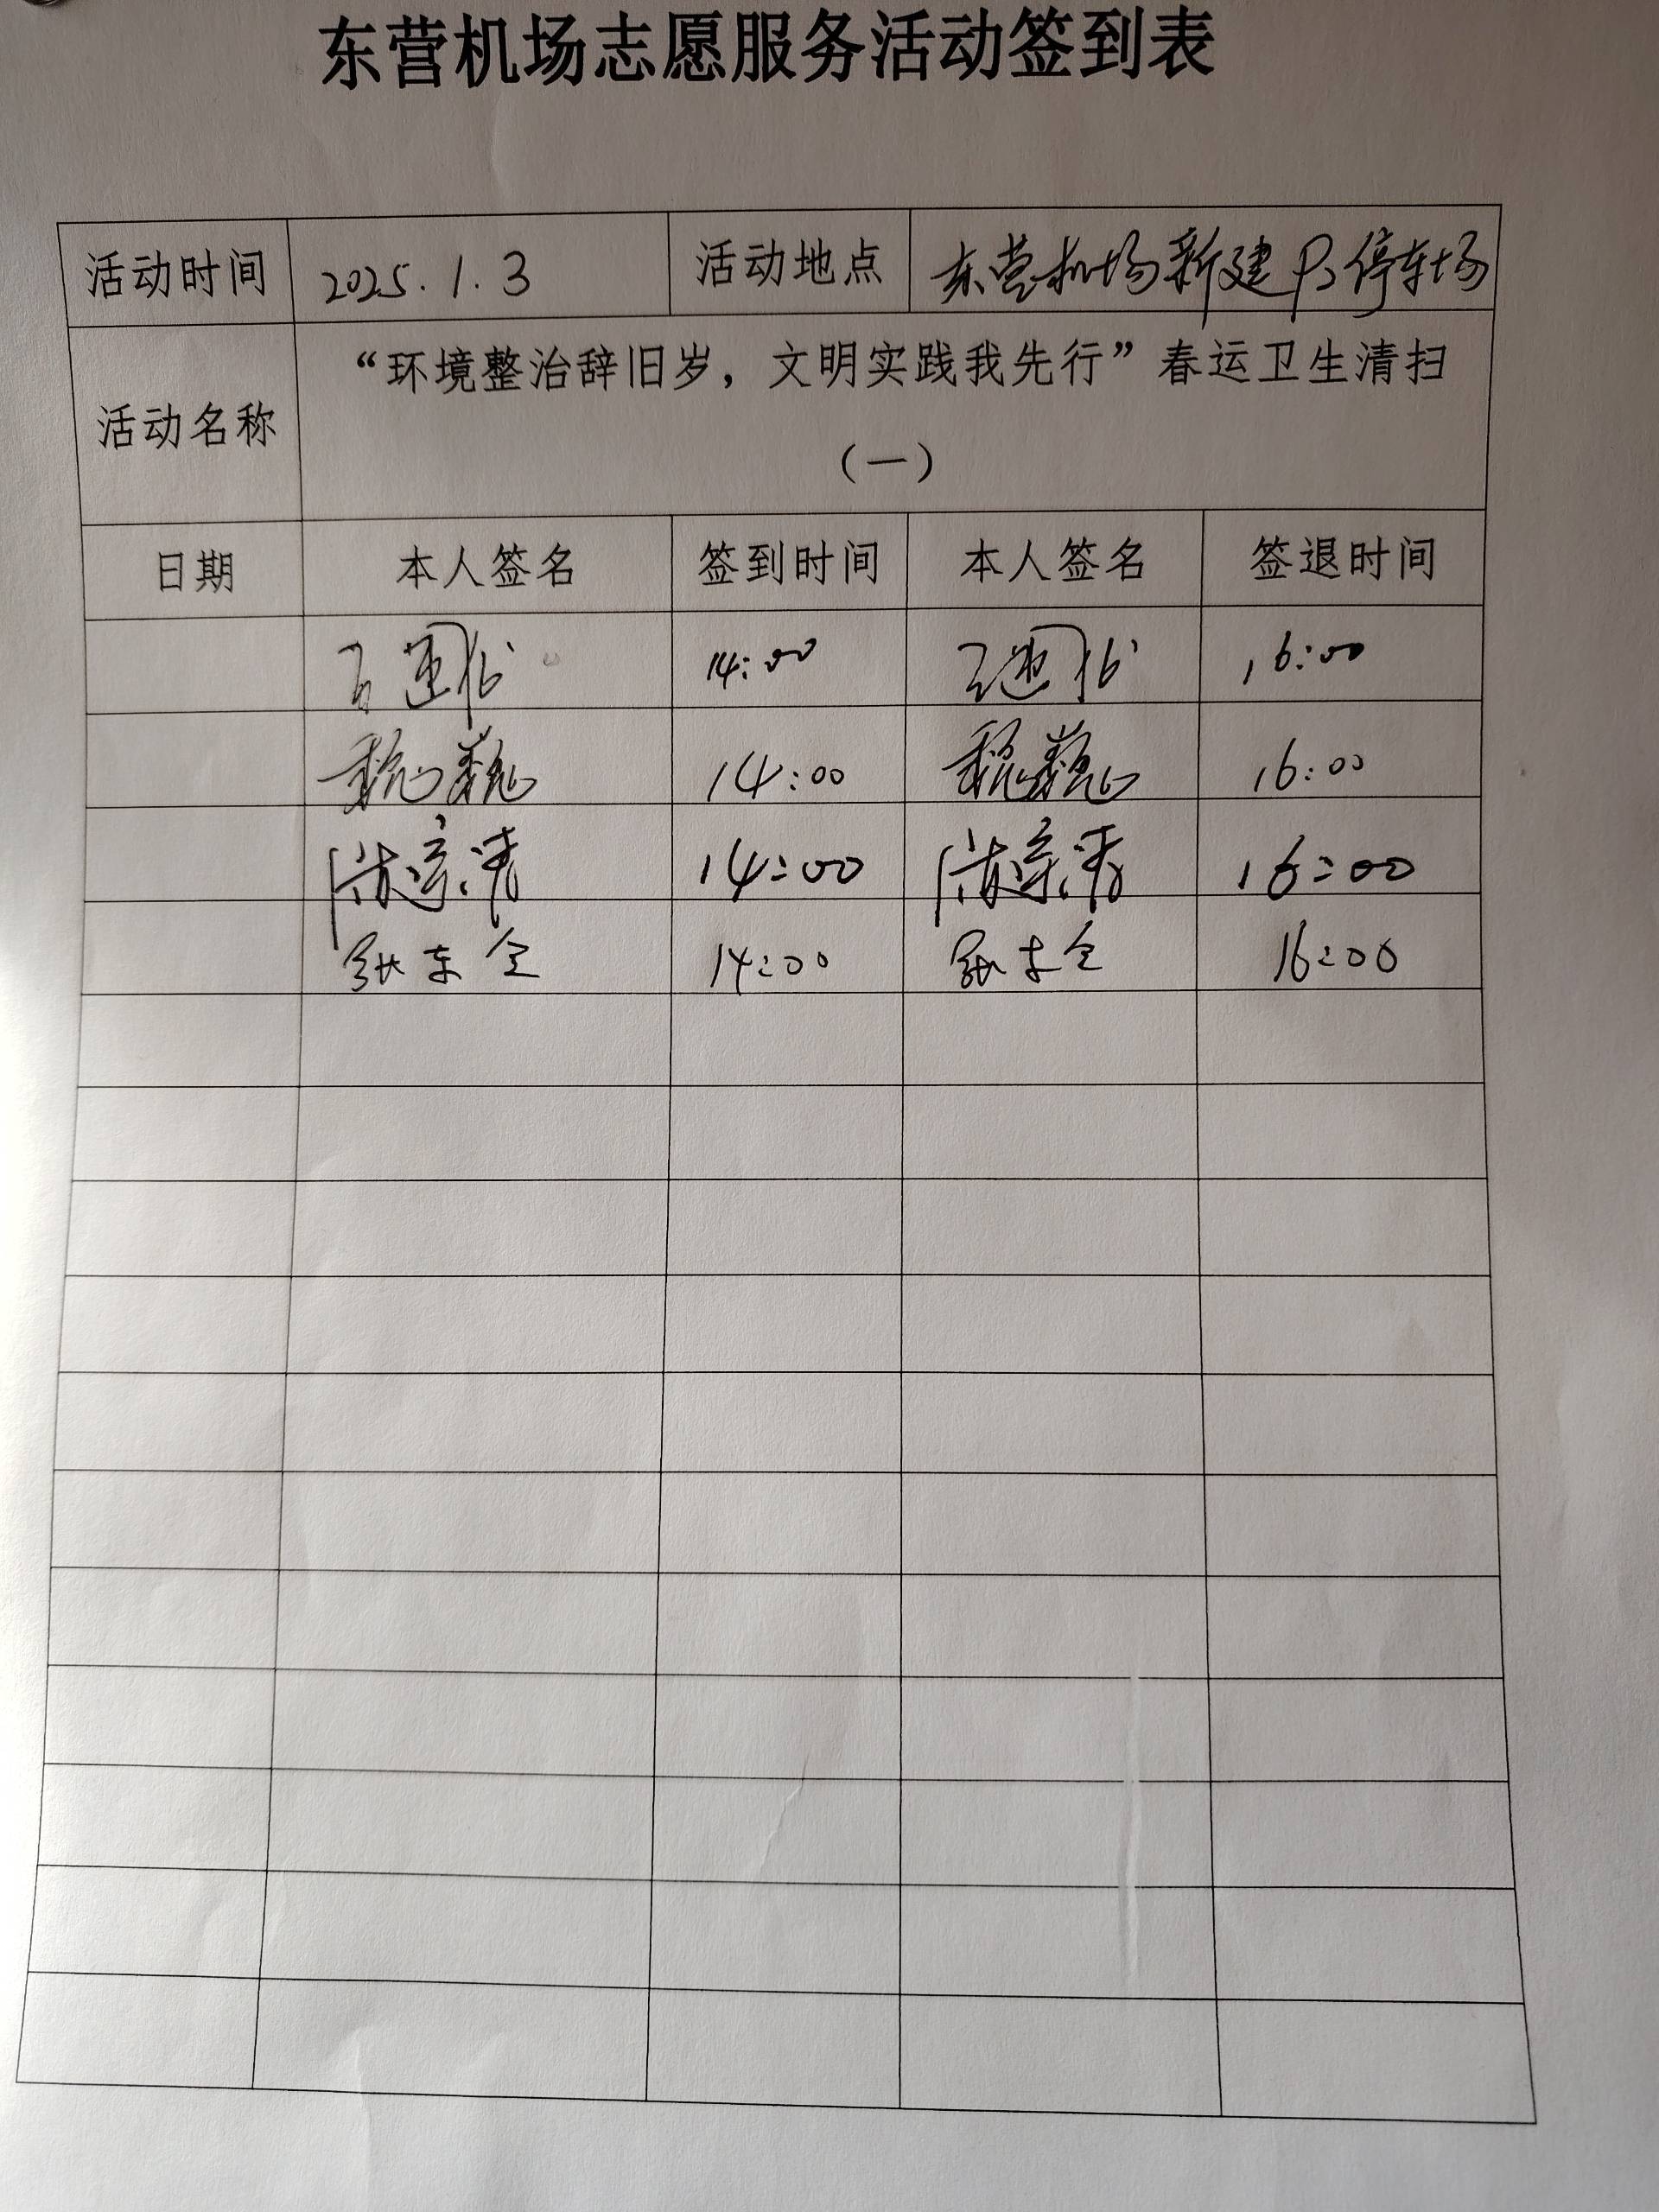 东营机场志愿服务活动签到表
活动时间 2025.1.3 活动地点 东营机场新建P3停车场
活动名称 “环境整治辞旧岁，文明实践我先行”春运卫生清扫
（一）
日期 本人签名 签到时间 本人签名 签退时间
14:00 16:00
魏巍 14:00 魏巍 16:00
14:00 16:00
张东全 14:00 张东全 16:00